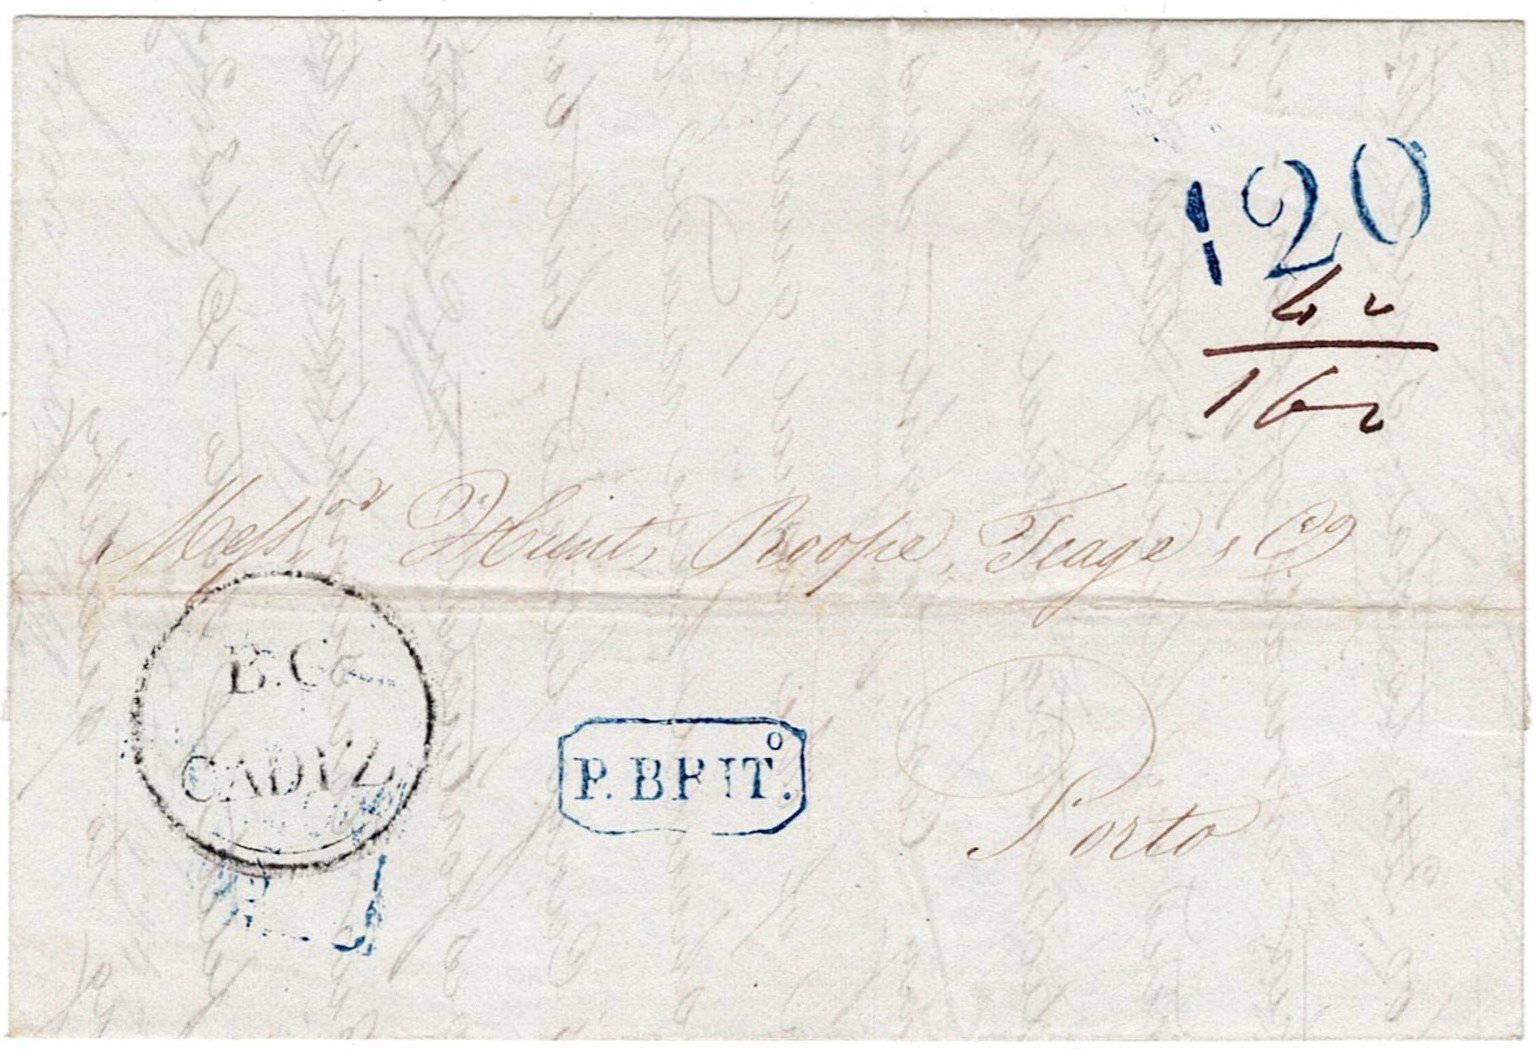 120
40
160
Messrs Hunt, Roope, Teage & Co
B.C
CADIZ
P. BRITo.
Porto